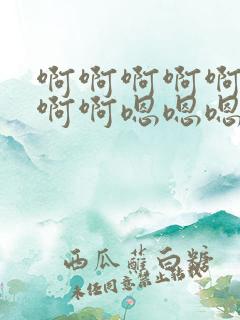 啊啊啊啊啊
啊啊嗯嗯嗯
西瓜蘸白糖
未经同意禁止转载